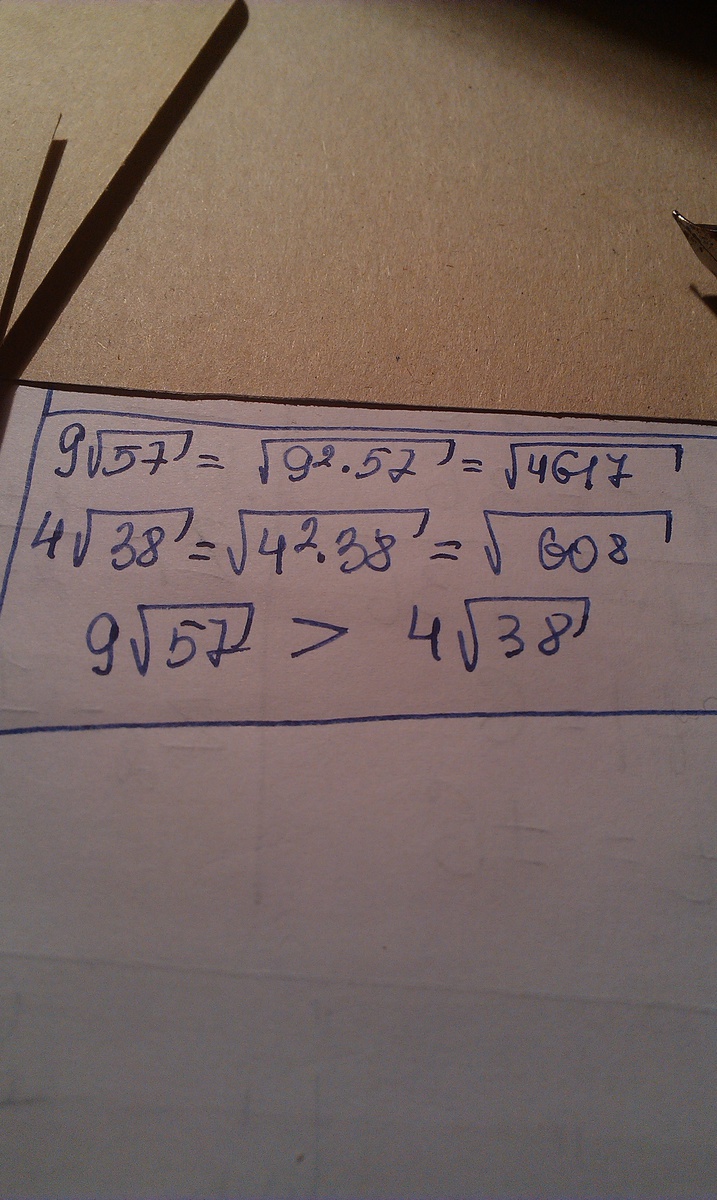 9√57 = √9²·57 = √4617
4√38 = √4²·38 = √608
9√57 > 4√38